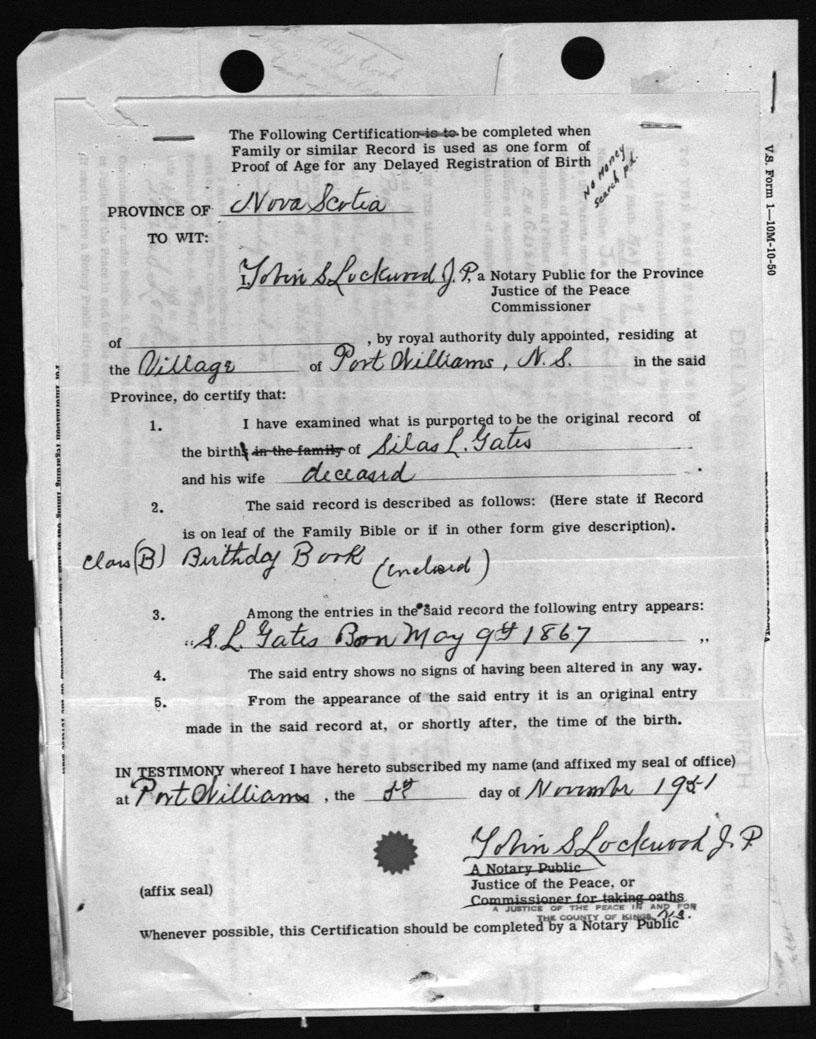 The Following Certification is to be completed when
Family or similar Record is used as one form of
Proof of Age for any Delayed Registration of Birth
No Money
search pd.
V.S. Form 1—10M-10-50
PROVINCE OF Nova Scotia
TO WIT:
I, John S Lockwood J.P. a Notary Public for the Province
Justice of the Peace
Commissioner
of , by royal authority duly appointed, residing at
the Village of Port Williams, N.S. in the said
Province, do certify that:
1. I have examined what is purported to be the original record of
the birth in the family of Silas L. Gates
and his wife deceasd .
2. The said record is described as follows: (Here state if Record
is on leaf of the Family Bible or if in other form give description).
Class (B) Birthday Book (enclosed)
3. Among the entries in the said record the following entry appears:
"S. L. Gates Born May 9th 1867 "
4. The said entry shows no signs of having been altered in any way.
5. From the appearance of the said entry it is an original entry
made in the said record at, or shortly after, the time of the birth.
IN TESTIMONY whereof I have hereto subscribed my name (and affixed my seal of office)
at Port Williams , the day of November 1951
John S Lockwood J. P
A Notary Public
(affix seal) Justice of the Peace, or
Commissioner for taking oaths
A JUSTICE OF THE PEACE IN AND FOR
THE COUNTY OF KINGS, N.S.
Whenever possible, this Certification should be completed by a Notary Public